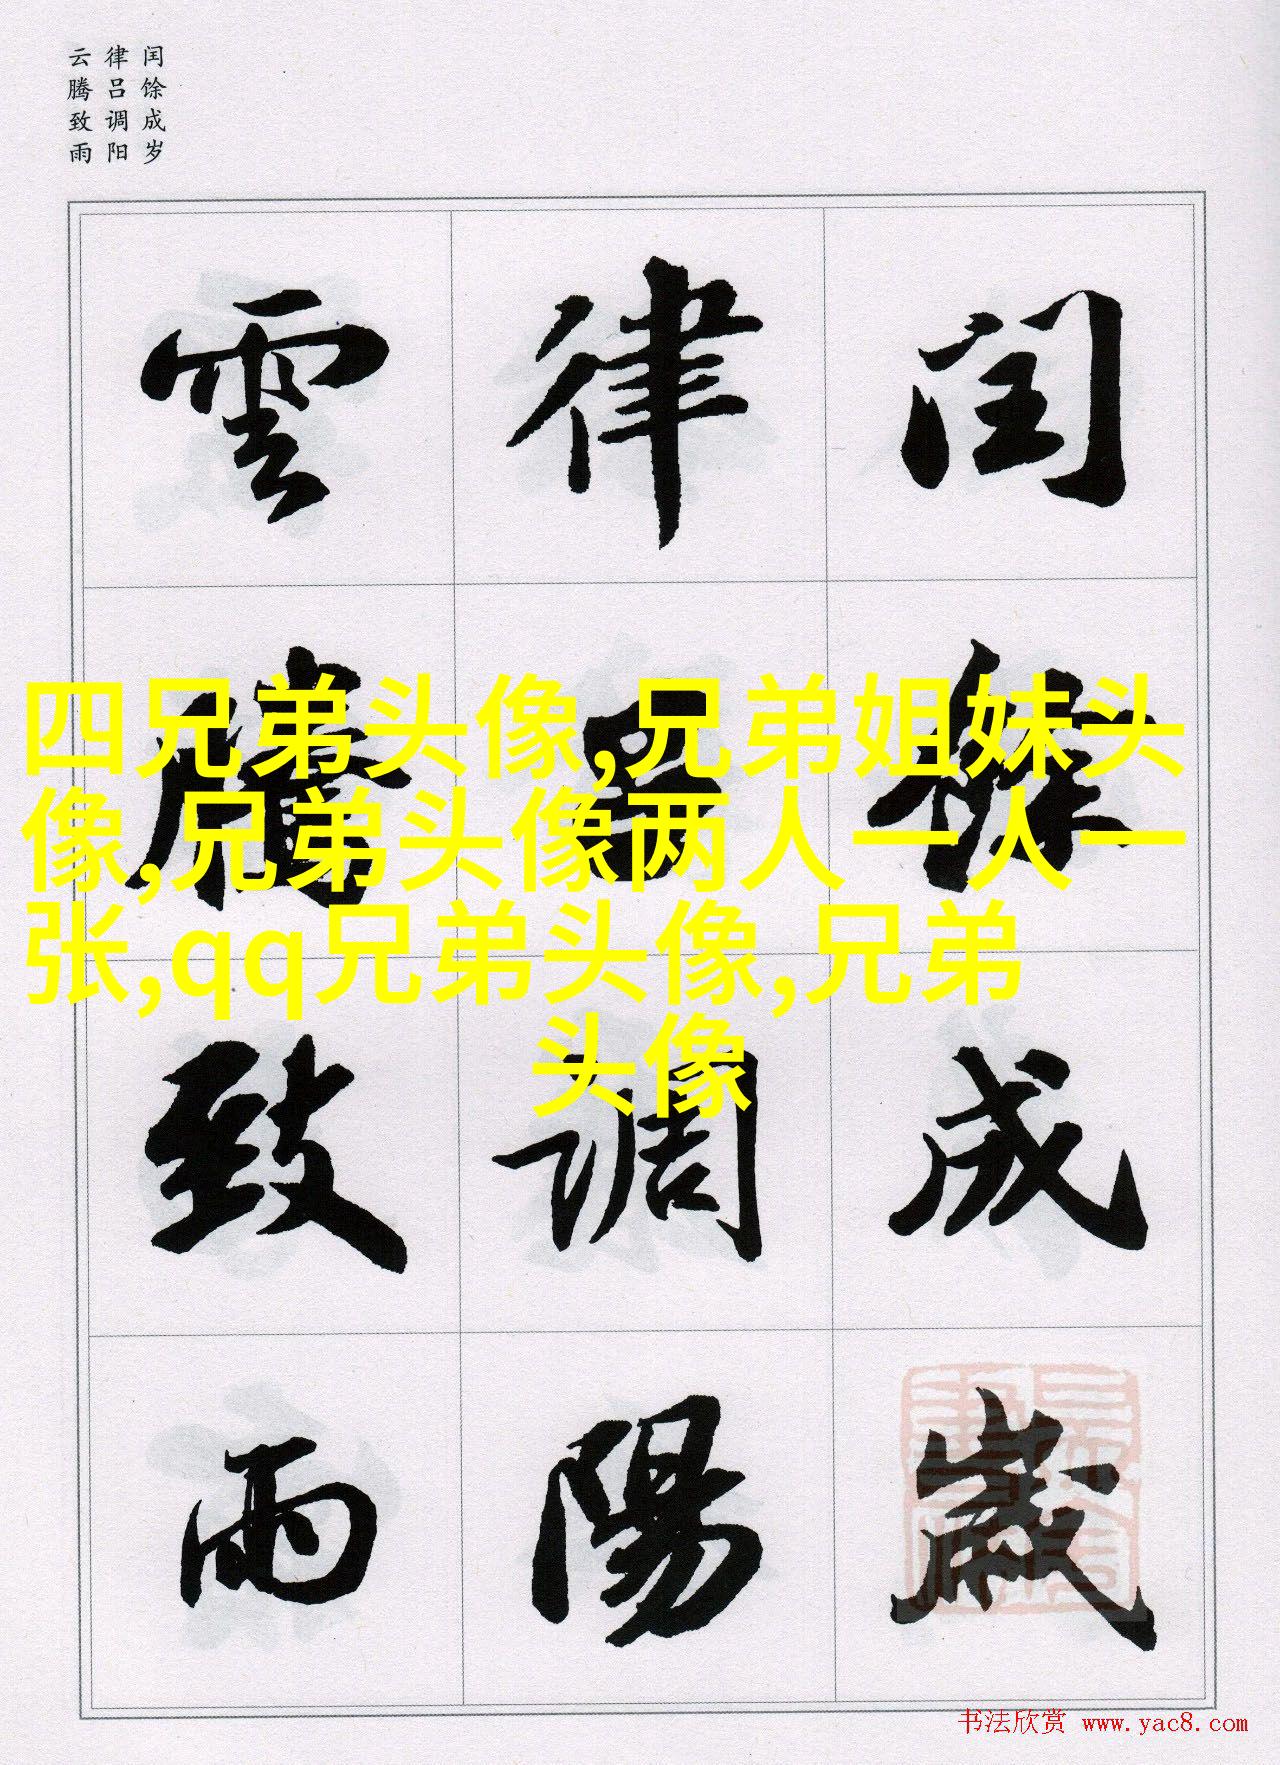 闰馀成岁
律吕调阳
云腾致雨
閏餘成歲
律呂調陽
雲騰致雨
四兄弟头像,兄弟姐妹头
像,兄弟头像两人一人一
张,qq兄弟头像,兄弟
头像
书法欣赏 www.yac8.com